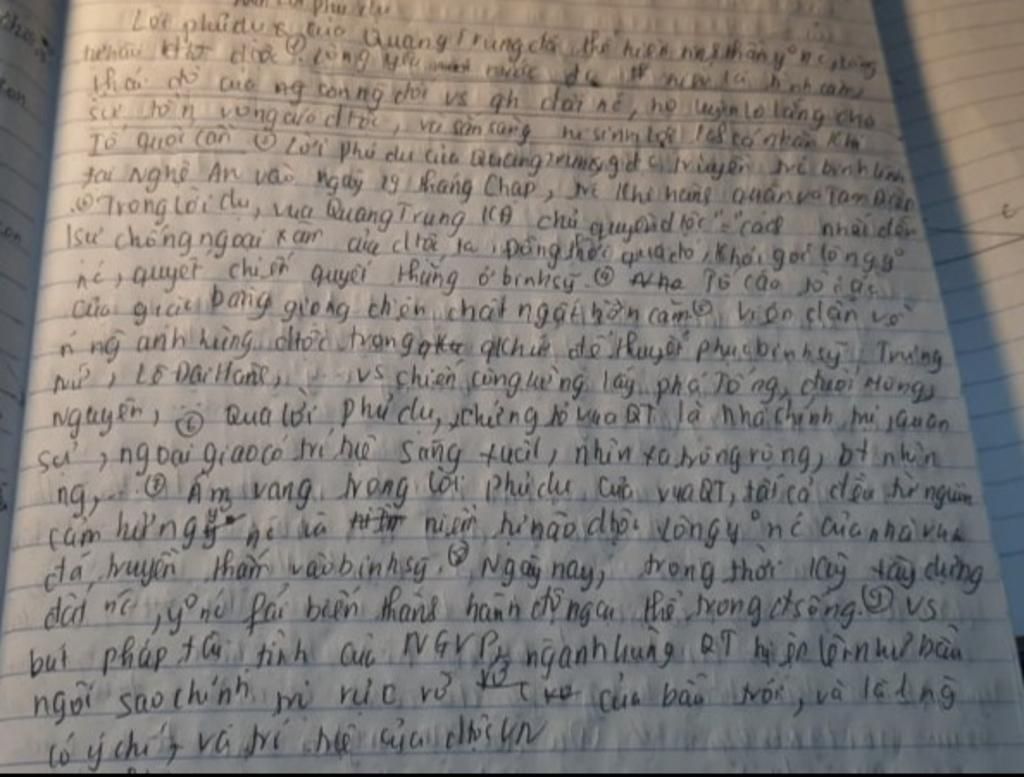 phủ dụ
Lời phủ dụ của Quang Trung đã thể hiện tinh thần y° nc, lòng
① lòng yêu nước là tình cảm,
thái độ của ng công dân vs qh đất nc, họ luôn lo lắng cho
sự tồn vong của dtộc, và sẵn sàng hi sinh lợi ích cá nhân khi
Tổ quốc cần ② Lời phủ dụ của Quang Trung đc truyền tới binh lính
tại Nghệ An vào ngày 29 tháng Chạp, trc khi hành quân ra Tam Điệp
Trong lời dụ, vua Quang Trung KĐ chủ quyền dtộc = cách nhắc đến
lsử chống ngoại xâm của dtộc ta, Đồng thời qua đó, khơi gợi lòng y°
nc, quyết chiến quyết thắng ở binh sỹ. ④ Tố cáo tội ác
của giặc bằng giọng chiến chất ngất hờn căm ⑤ Viện dẫn về
n ng anh hùng dtộc trong qkhứ để thuyết phục binh sỹ, Trưng
nữ, Lê Đại Hành, ... vs chiến công lừng lẫy phá Tống, đuổi Mông
Nguyên, ⑥ Qua lời phủ dụ, chứng tỏ vua QT là nhà chính trị, quân
sự, ngoại giao có trí tuệ sáng suốt, nhìn xa trông rộng, bt nhìn
ng, ... ⑦ Âm vang trong lời phủ dụ của vua QT, tất cả đều từ nguồn
cảm hứng y° nc và niềm tự hào dtộc lòng y° nc của nhà vua
đã truyền thấm vào binh sỹ. ⑧ Ngày nay, trong thời kỳ xây dựng
đất nc, y° nc fải biến thành hành động cụ thể trong csống. ⑨ vs
bút pháp tài tình của NGVP, ng anh hùng QT hiện lên như bầu
ngôi sao chính mi rực rỡ của bầu trời, và là 1 ng
có ý chí, và trí tuệ của dtộc VN